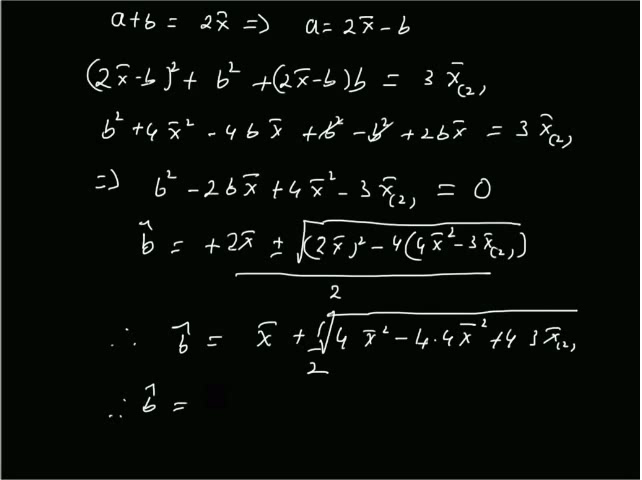 a+b = 2x̄ => a = 2x̄-b
(2x̄-b)² + b² + (2x̄-b)b = 3x̄₍₂₎
b² + 4x̄² - 4bx̄ + b² - b² + 2bx̄ = 3x̄₍₂₎
=> b² - 2bx̄ + 4x̄² - 3x̄₍₂₎ = 0
b̂ = +2x̄ ± √((2x̄)² - 4(4x̄² - 3x̄₍₂₎))
2
∴ b̂ = x̄ + 1/2 √(4x̄² - 4·4x̄² + 4 3x̄₍₂₎
∴ b̂ =